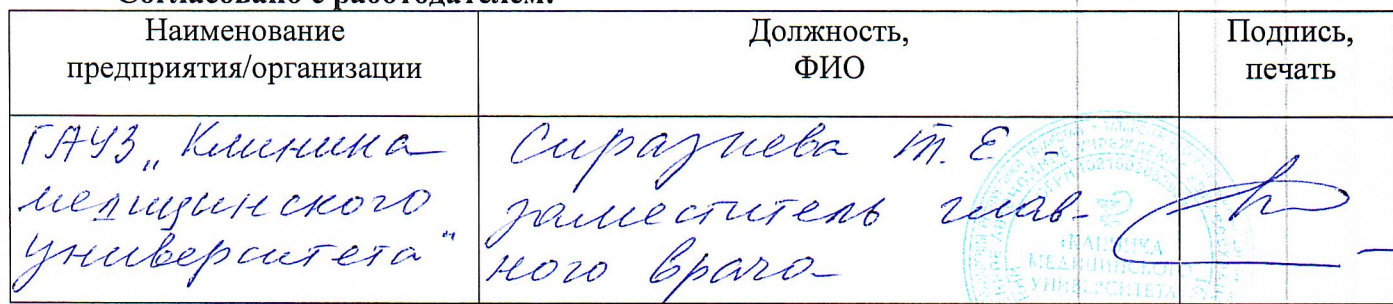 Согласовано с работодателем:
Наименование
предприятия/организации
Должность,
ФИО
Подпись,
печать
ГАУЗ „Клиника
медицинского
университета"
Сиразиева Т. Е -
заместитель глав-
ного врача
«КЛИНИКА
МЕДИЦИНСКОГО
УНИВЕРСИТЕТА